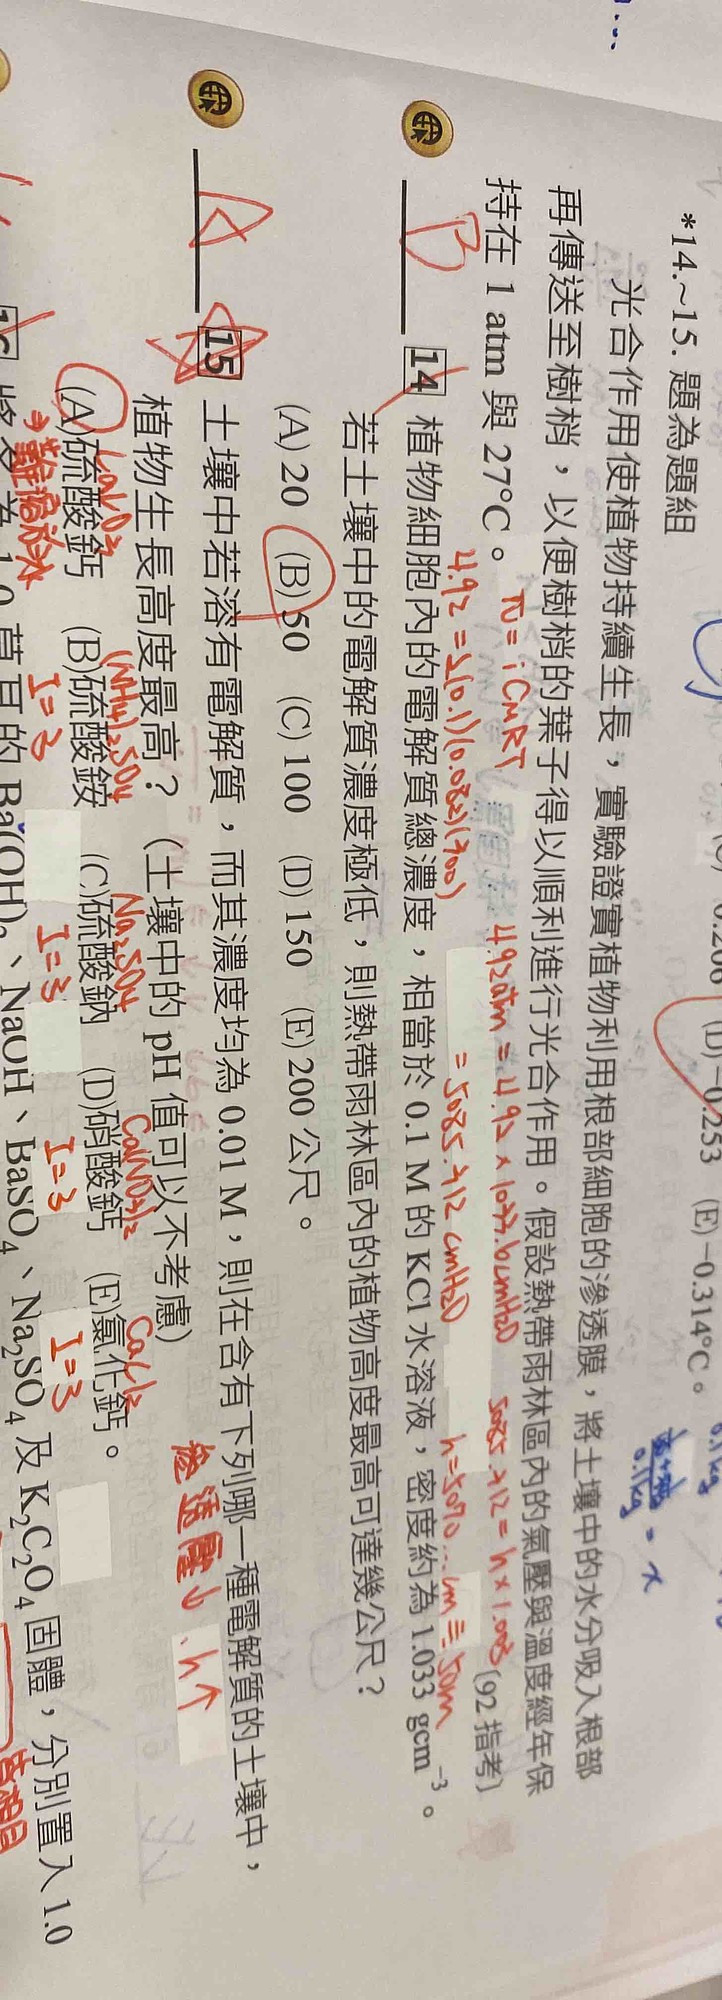 0.206 (D)−0.253 (E)−0.314°C。
0.1kg
0.1kg = x
*14.~15. 題為題組
光合作用使植物持續生長，實驗證實植物利用根部細胞的滲透膜，將土壤中的水分吸入根部
再傳送至樹梢，以便樹梢的葉子得以順利進行光合作用。假設熱帶雨林區內的氣壓與溫度經年保
持在 1 atm 與 27°C。 〔92 指考〕
π = iCMRT
4.92 = 2(0.1)(0.082)(300)
4.92atm = 4.92 × 1033.6cmH2O
= 5085.312 cmH2O
5085.312 = h × 1.003
h=5070...cm ≡ 50m
B 14 植物細胞內的電解質總濃度，相當於 0.1 M 的 KCl 水溶液，密度約為 1.033 gcm⁻³。
若土壤中的電解質濃度極低，則熱帶雨林區內的植物高度最高可達幾公尺？
(A) 20 (B) 50 (C) 100 (D) 150 (E) 200 公尺。
A 15 土壤中若溶有電解質，而其濃度均為 0.01 M，則在含有下列哪一種電解質的土壤中，
植物生長高度最高？（土壤中的 pH 值可以不考慮）
滲透壓↓ . h↑
(NH4)2SO4 Na2SO4 Ca(NO3)2 CaCl2
(A)硫酸鈣 (B)硫酸銨 (C)硫酸鈉 (D)硝酸鈣 (E)氯化鈣。
→難溶於水 I=3 I=3 I=3 I=3
1.0 莫耳的 Ba(OH)₂、NaOH、BaSO₄、Na₂SO₄ 及 K₂C₂O₄ 固體，分別置入 1.0